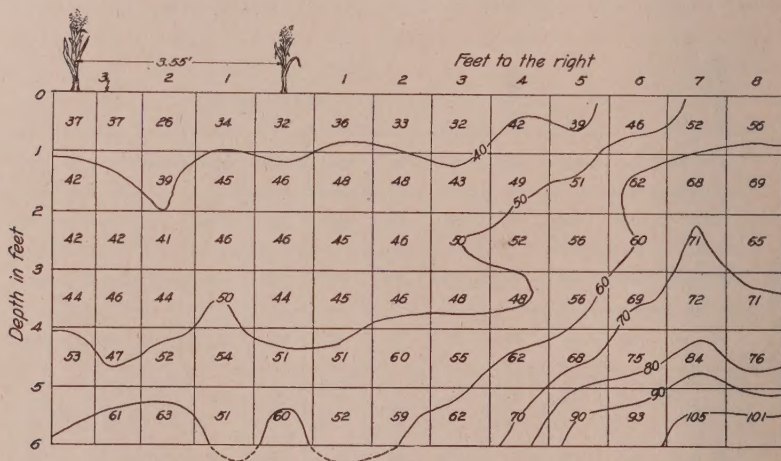 3.55'
Feet to the right
3 2 1 1 2 3 4 5 6 7 8
Depth in feet
0
37 37 26 34 32 36 33 32 42 39 46 52 56
40
1
42 39 45 46 48 48 43 49 51 62 68 69
50
2
42 42 41 46 46 45 46 50 52 56 60 71 65
3
60
44 46 44 50 44 45 46 48 48 56 69 72 71
70
4
53 47 52 54 51 51 60 55 62 68 75 84 76
80
5
90
61 63 51 60 52 59 62 70 90 93 105 101
6